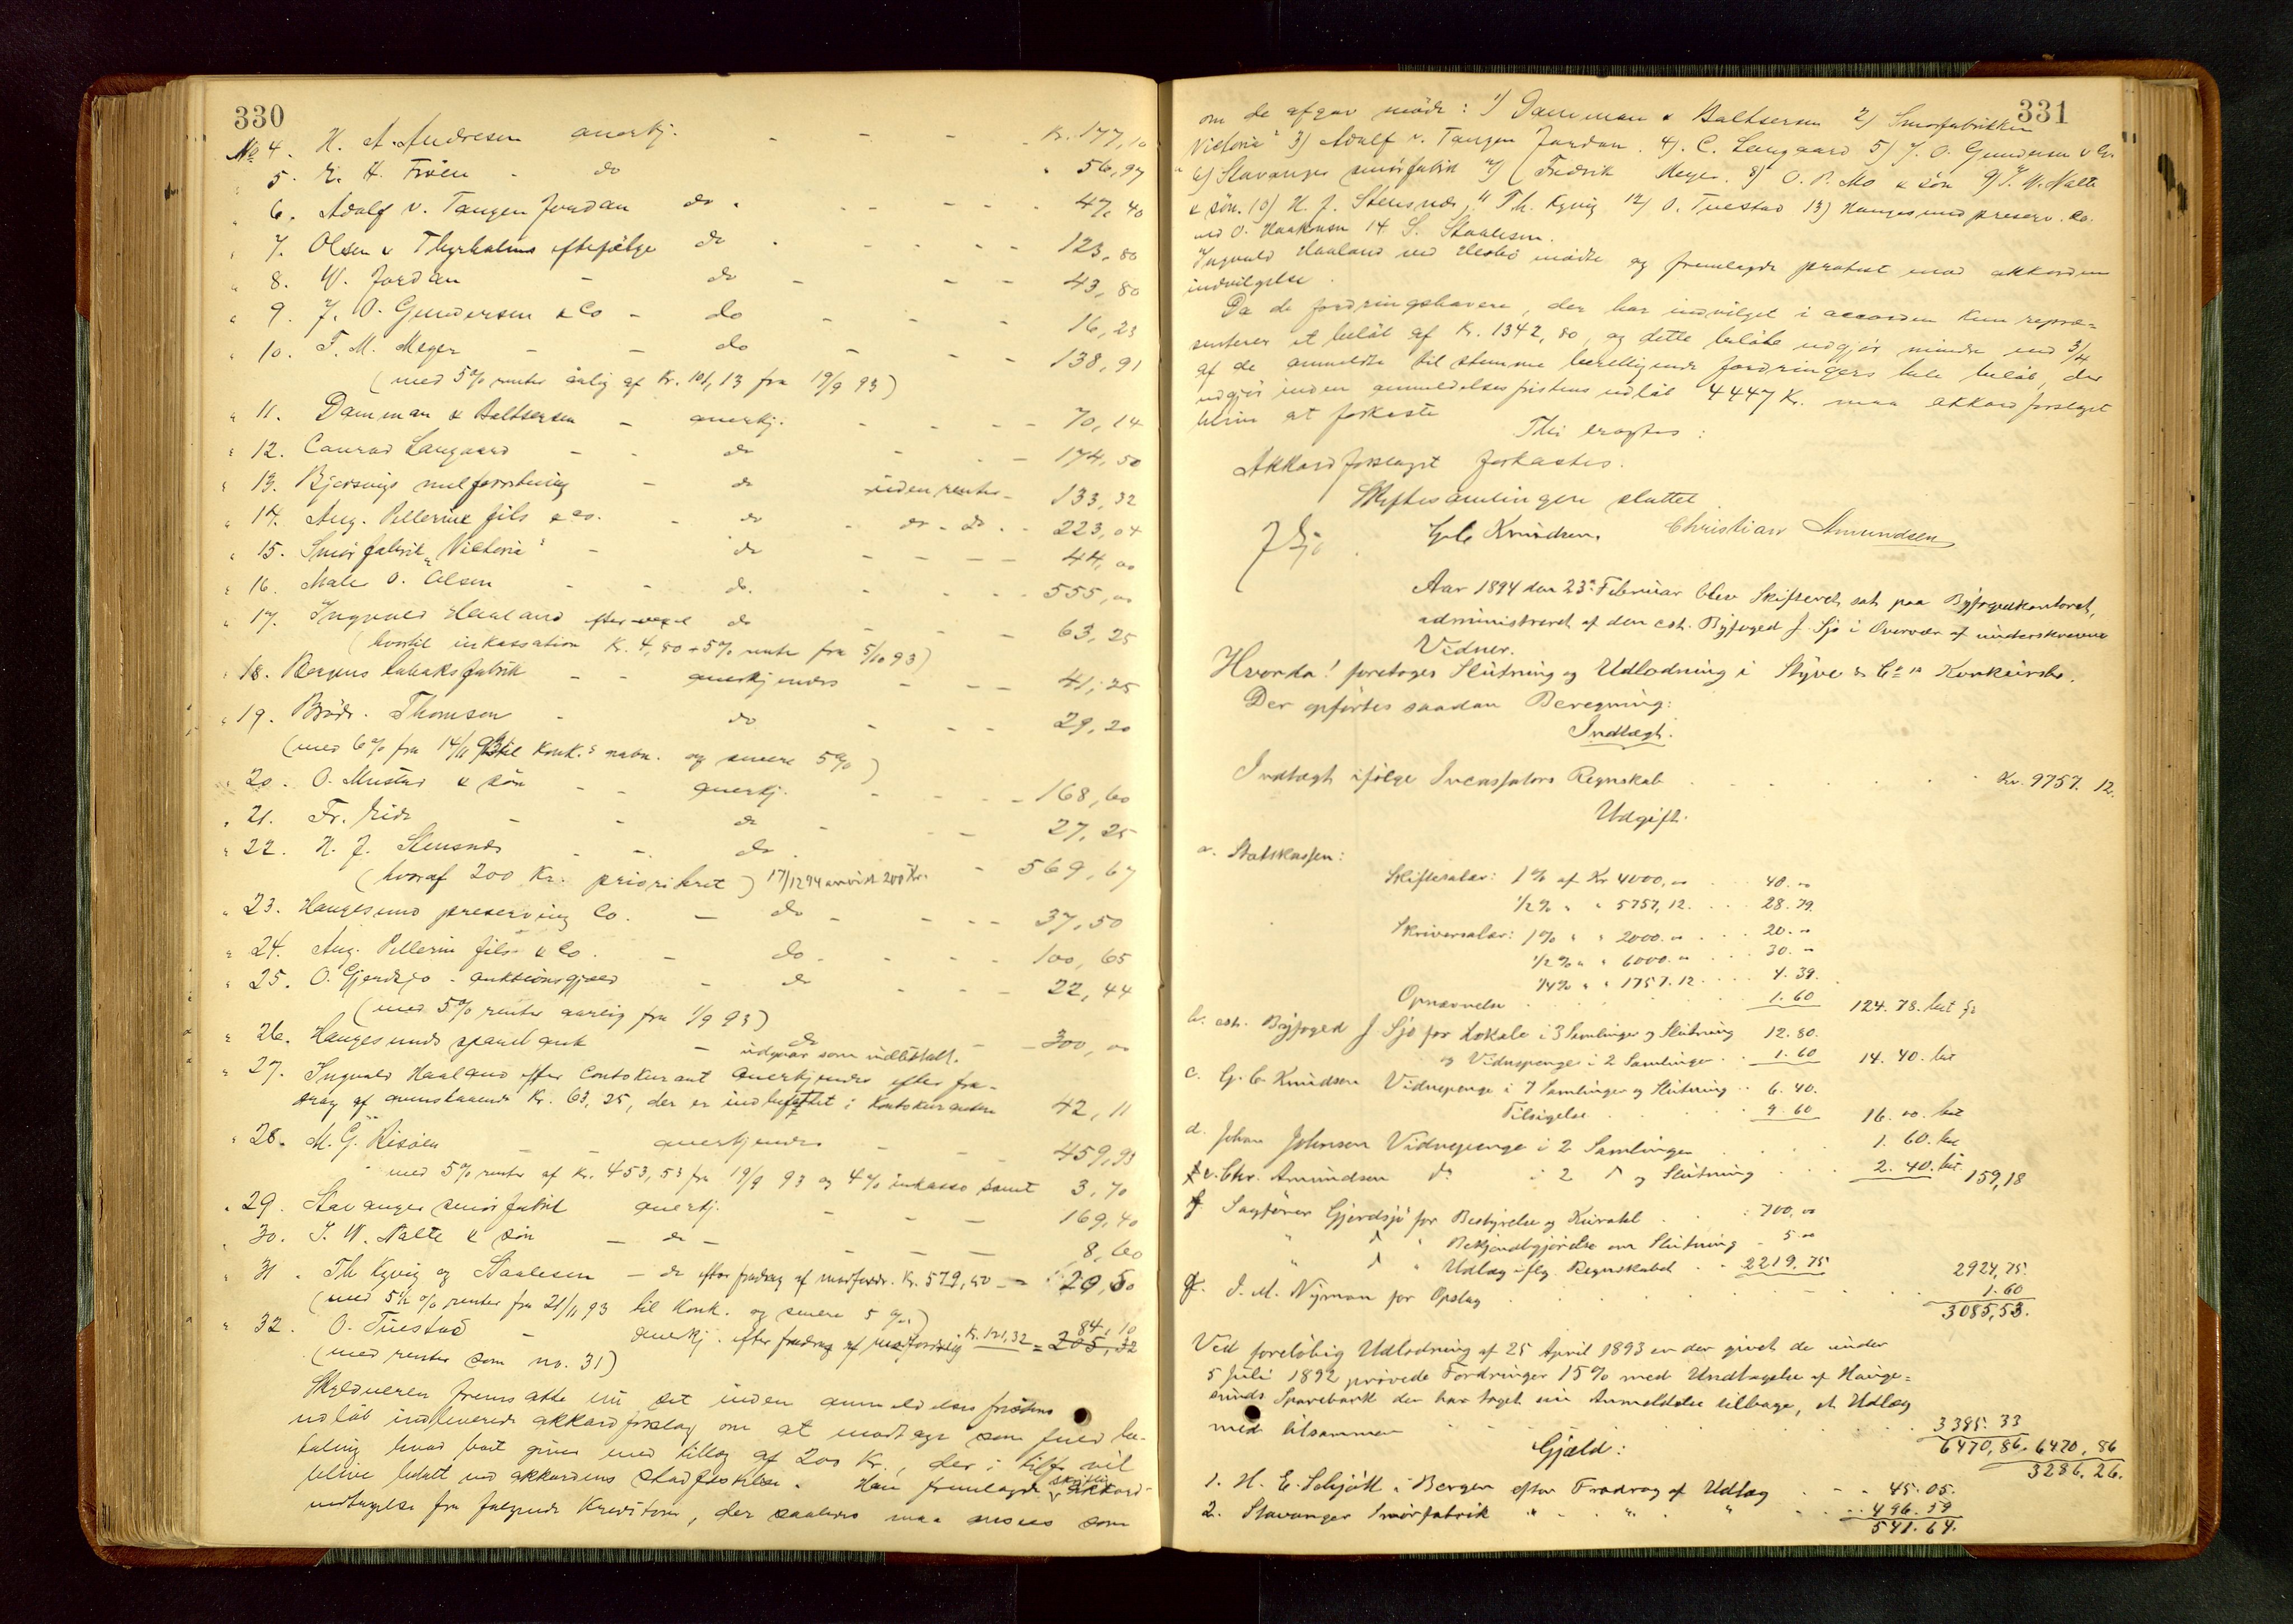 330
No 4. H. A. Andresen anerkj. - - - - Kr. 177,10
" 5. E. H. Fröen - do " 56,97
" 6. Adolf v. Tangen Jordan do. - - - - 47,40
" 7. Olsen & Thyrholms efterfølge do - - - - 123,80
" 8. W. Jordan - do - - - 43,80
" 9. J. O. Gundersen & Co - do - - - 16,23
" 10. F. M. Meyer - - do - - - 138,91
(med 5% renter aarlig af Kr. 101,13 fra 19/9 93)
" 11. Damman & Baltsersen - anerkj. - - - - 70,14
" 12. Conrad Langaard - - do - - - 174,50
" 13. Bjersvigs melforretning - do uden renter - 133,32
" 14. Aug. Pellerin fils & co. - do - do - do - - 223,04
" 15. Smörfabrik "Victoria" - do - - - - 44,00
" 16. Maler O. Olsen - - do. - - - - 555,00
" 17. Ingvald Haaland efter vexel do - - - 63,25
(hvortil inkassation Kr. 4,80 + 5% rente fra 5/10 93)
" 18. Bergens tobaksfabrik - - anerkjendes - - - 41,25
" 19. Brödr. Thomsen - do - - - 29,20
(med 6% fra 14/11 93 til Konk.s aabn. og senere 5%)
" 20. O. Mustad & sön - - anerkj. - - - - 168,60
" 21. Fr. Eide - - do - - - 27,25
" 22. H. J. Stensnæs - - do - 569,67
(hvoraf 200 Kr. prioritert) 17/12 94 anvist 200 Kr.
" 23. Haugesund preserving Co. - do - - - - 37,50
" 24. Aug. Pellerin fils & Co. - do - - - - 100,65
" 25. O. Gjerdsjö - auktionsgjæld - do - - - 22,44
(med 5% renter aarlig fra 1/9 93)
" 26. Haugesunds sparebank - do - - 300,00
udgaar som indbetalt.
" 27. Ingvald Haaland efter Contokurant anerkjendes efter fra-
drag af ovenstaaende Kr. 63,25, der er indbefattet i Kontokuranten 42,11
" 28. M. G. Risöen - - anerkjendes - - - 459,93
med 5% renter af Kr. 453,53 fra 19/9 93 og 4% inkasso samt 3,70
" 29. Stavanger smörfabrik anerkj. - - - 169,40
" 30. J. W. Nalte & sön - do - - - - 8,60
" 31. Th Kyvig og Staalesen - do efter fradrag af modfordr. Kr. 579,50 - = 20,50
(med 5½% renter fra 21/11 93 til Konk. og senere 5%)
" 32. O. Tuestad - anerkj. efter fradrag af modfordring Kr. 121,32 = 205,32 84,10
(med renter som no. 31)
Skyldneren fremsatte nu det inden anmeldelsesfristens
udløb indleverede akkordforslag om at modtage som fuld be-
taling hvad boet giver med tillæg af 200 Kr., der i tilf. vil
blive betalt ved akkordens stadfæstelse. Han fremlagde skriftlig akkord-
vedtagelse fra følgende Kreditorer, der saaledes maa ansees som
331
om de afgav möde: 1) Damman & Baltsersen 2) Smörfabrikken
"Victoria" 3) Adolf v. Tangen Jordan. 4). C. Langaard 5) J. O. Gundersen & Co.
6) Stavanger smörfabrik 7) Fredrik Meyer. 8) O. P. Mo & sön 9) J. W. Nalte
& sön. 10) H. J. Stensnæs, 11 Th. Kyvig 12) O. Tuestad 13) Haugesund preserv. Co.
ved O. Haakonsen 14. S. Staalesen.
Ingvald Haaland ved Hesbö mødte og fremlagde protest mod akkordens
indvilgelse.
Da de fordringshavere, der har indvilget i accorden kun repræ-
senterer et beløb af Kr. 1342,80, og dette beløb udgjør mindre end 3/4
af de anmeldte til stemme berettigende fordringers hele beløb, der
udgjør inden anmeldelsesfristens udløb 4447 Kr. maa akkordforslaget
blive at forkaste
Thi eragtes:
Akkordforslaget forkastes.
Skiftesamlingen sluttet
J Sjö. G. C. Knudsen. Christian Amundsen
Aar 1894 den 23de Februar blev Skifteret sat paa Byfogedkontoret,
administreret af den cst. Byfoged J. Sjö i Overvær af underskrevne
Vidner.
Hvorda! foretoges Slutning og Udlodning i Styve & Co.s Konkursbo.
Der opførtes saadan Beregning:
Indtægt.
Indtægt ifølge Incassators Regnskab . . . . Kr. 9757. 12.
Udgift.
a. Statskassen:
Skiftesalær: 1% af Kr 4000,00 . . 40.00
½% " " 5757,12. . . . 28.79.
Skriversalær: 1% " " 2000.00 . . . 20.00
½% " " 6000.00 . . . 30.00
¼% " " 1757.12. . . . 4.39.
Opnævnelse . . . 1.60 124.78. bet
b. cst. Byfoged J. Sjö for Lokale i 3 Samlinger og Slutning 12.80.
og Vidnepenge i 2 Samlinger . . 1.60 14.40. bet
c. G. C. Knudsen Vidnepenge i 7 Samlinger og Slutning . . 6.40.
Tilsigelse . . . . 9.60 16.00. bet
d. Johan Johnsen Vidnepenge i 2 Samlinger . . . 1.60. bet
e. Chr. Amundsen do i 2 do og Slutning . . . 2.40. bet 159,18
f Sagfører Gjerdsjö for Bestyrelse og Kuratel . . . 700,00
" do " Bekjendtgjørelse om Slutning - 5.00
" do " Udlæg iflg. Regnskabet . . 2219,75 2924,75.
g. J. M. Nyman for Opslag . . . . 1.60
3085,53.
Ved foreløbig Udlodning af 25 April 1893 er der givet de under
5 Juli 1892 prøvede Fordringer 15% med Undtagelse af Hauge-
sunds Sparebank der har taget sin Anmeldelse tilbage, et Udlæg
med tilsammen . . . . . 3385.33
6470,86. 6470,86
3286.26.
Gjæld:
1. H. E. Schjøtt i Bergen efter Fradrag af Udlæg . - - 45.05.
2. Stavanger Smørfabrik " . " . " . . 496.59
541.64.